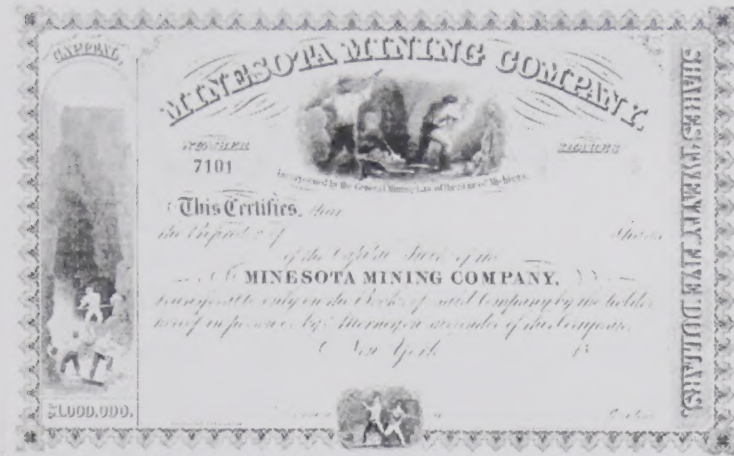 CAPITAL,
MINESOTA MINING COMPANY.
NUMBER
7101
SHARES
Incorporated by the General Mining Law of the State of Michigan.
This Certifies, that
the Proprietor of Shares
of the Capital Stock of the
MINESOTA MINING COMPANY,
transferable only on the Books of said Company by the holder
hereof in person or by Attorney on surrender of this Certificate
New York 18
$1,000,000.
SHARES TWENTY FIVE DOLLARS.